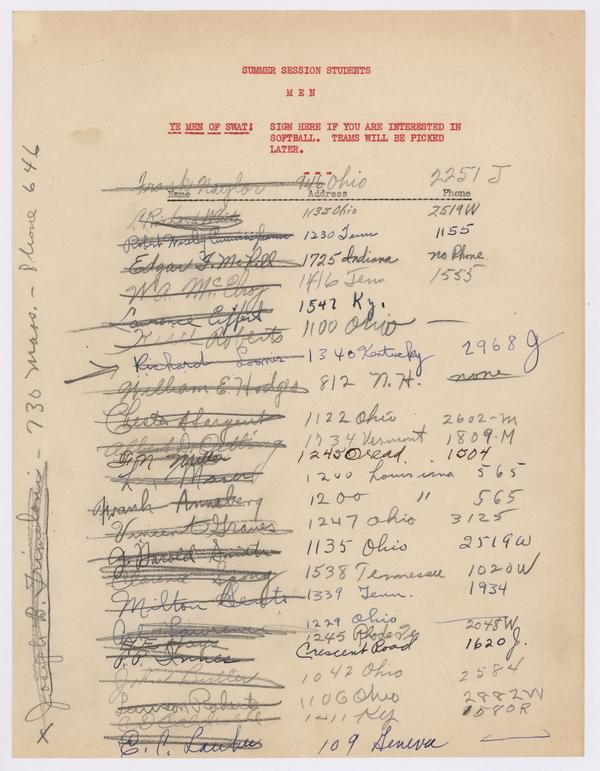 SUMMER SESSION STUDENTS
MEN
YE MEN OF SWAT! SIGN HERE IF YOU ARE INTERESTED IN
SOFTBALL. TEAMS WILL BE PICKED
LATER.
Frank Naylor 946 Ohio 2251 J
Name Address Phone
1135 Ohio 2519W
Robert Wesley Cunningham 1230 Tenn 1155
Edgar F. McPill 1725 Indiana no Phone
W.A. McElroy 1416 Tenn 1555
Laurence Eiffert 1547 Ky.
Roberts 1100 Ohio —
Richard 1340 Kentucky 2968 J
William E. Hodges 812 N.H. none
Chester Sargent 1122 Ohio 2602-M
1734 Vermont 1809-M
F.N. Miller 1245 Oread. 1504
1200 Louisiana 565
Frank Anneberg 1200 " 565
Vincent Graves 1247 Ohio 3125
J. Harold Smith 1135 Ohio 2519W
Clarence 1538 Tennessee 1020W
Milton 1339 Tenn. 1934
1229 Ohio 2048W
1245
P.P. Innes Crescent Road 1620 J.
John Butler 1042 Ohio 2584
Lawson Roberts 1106 Ohio 2882W
1411 Ky 1580R
E. C. 109 Geneva
x Joseph B. – 730 Mass. – Phone 646